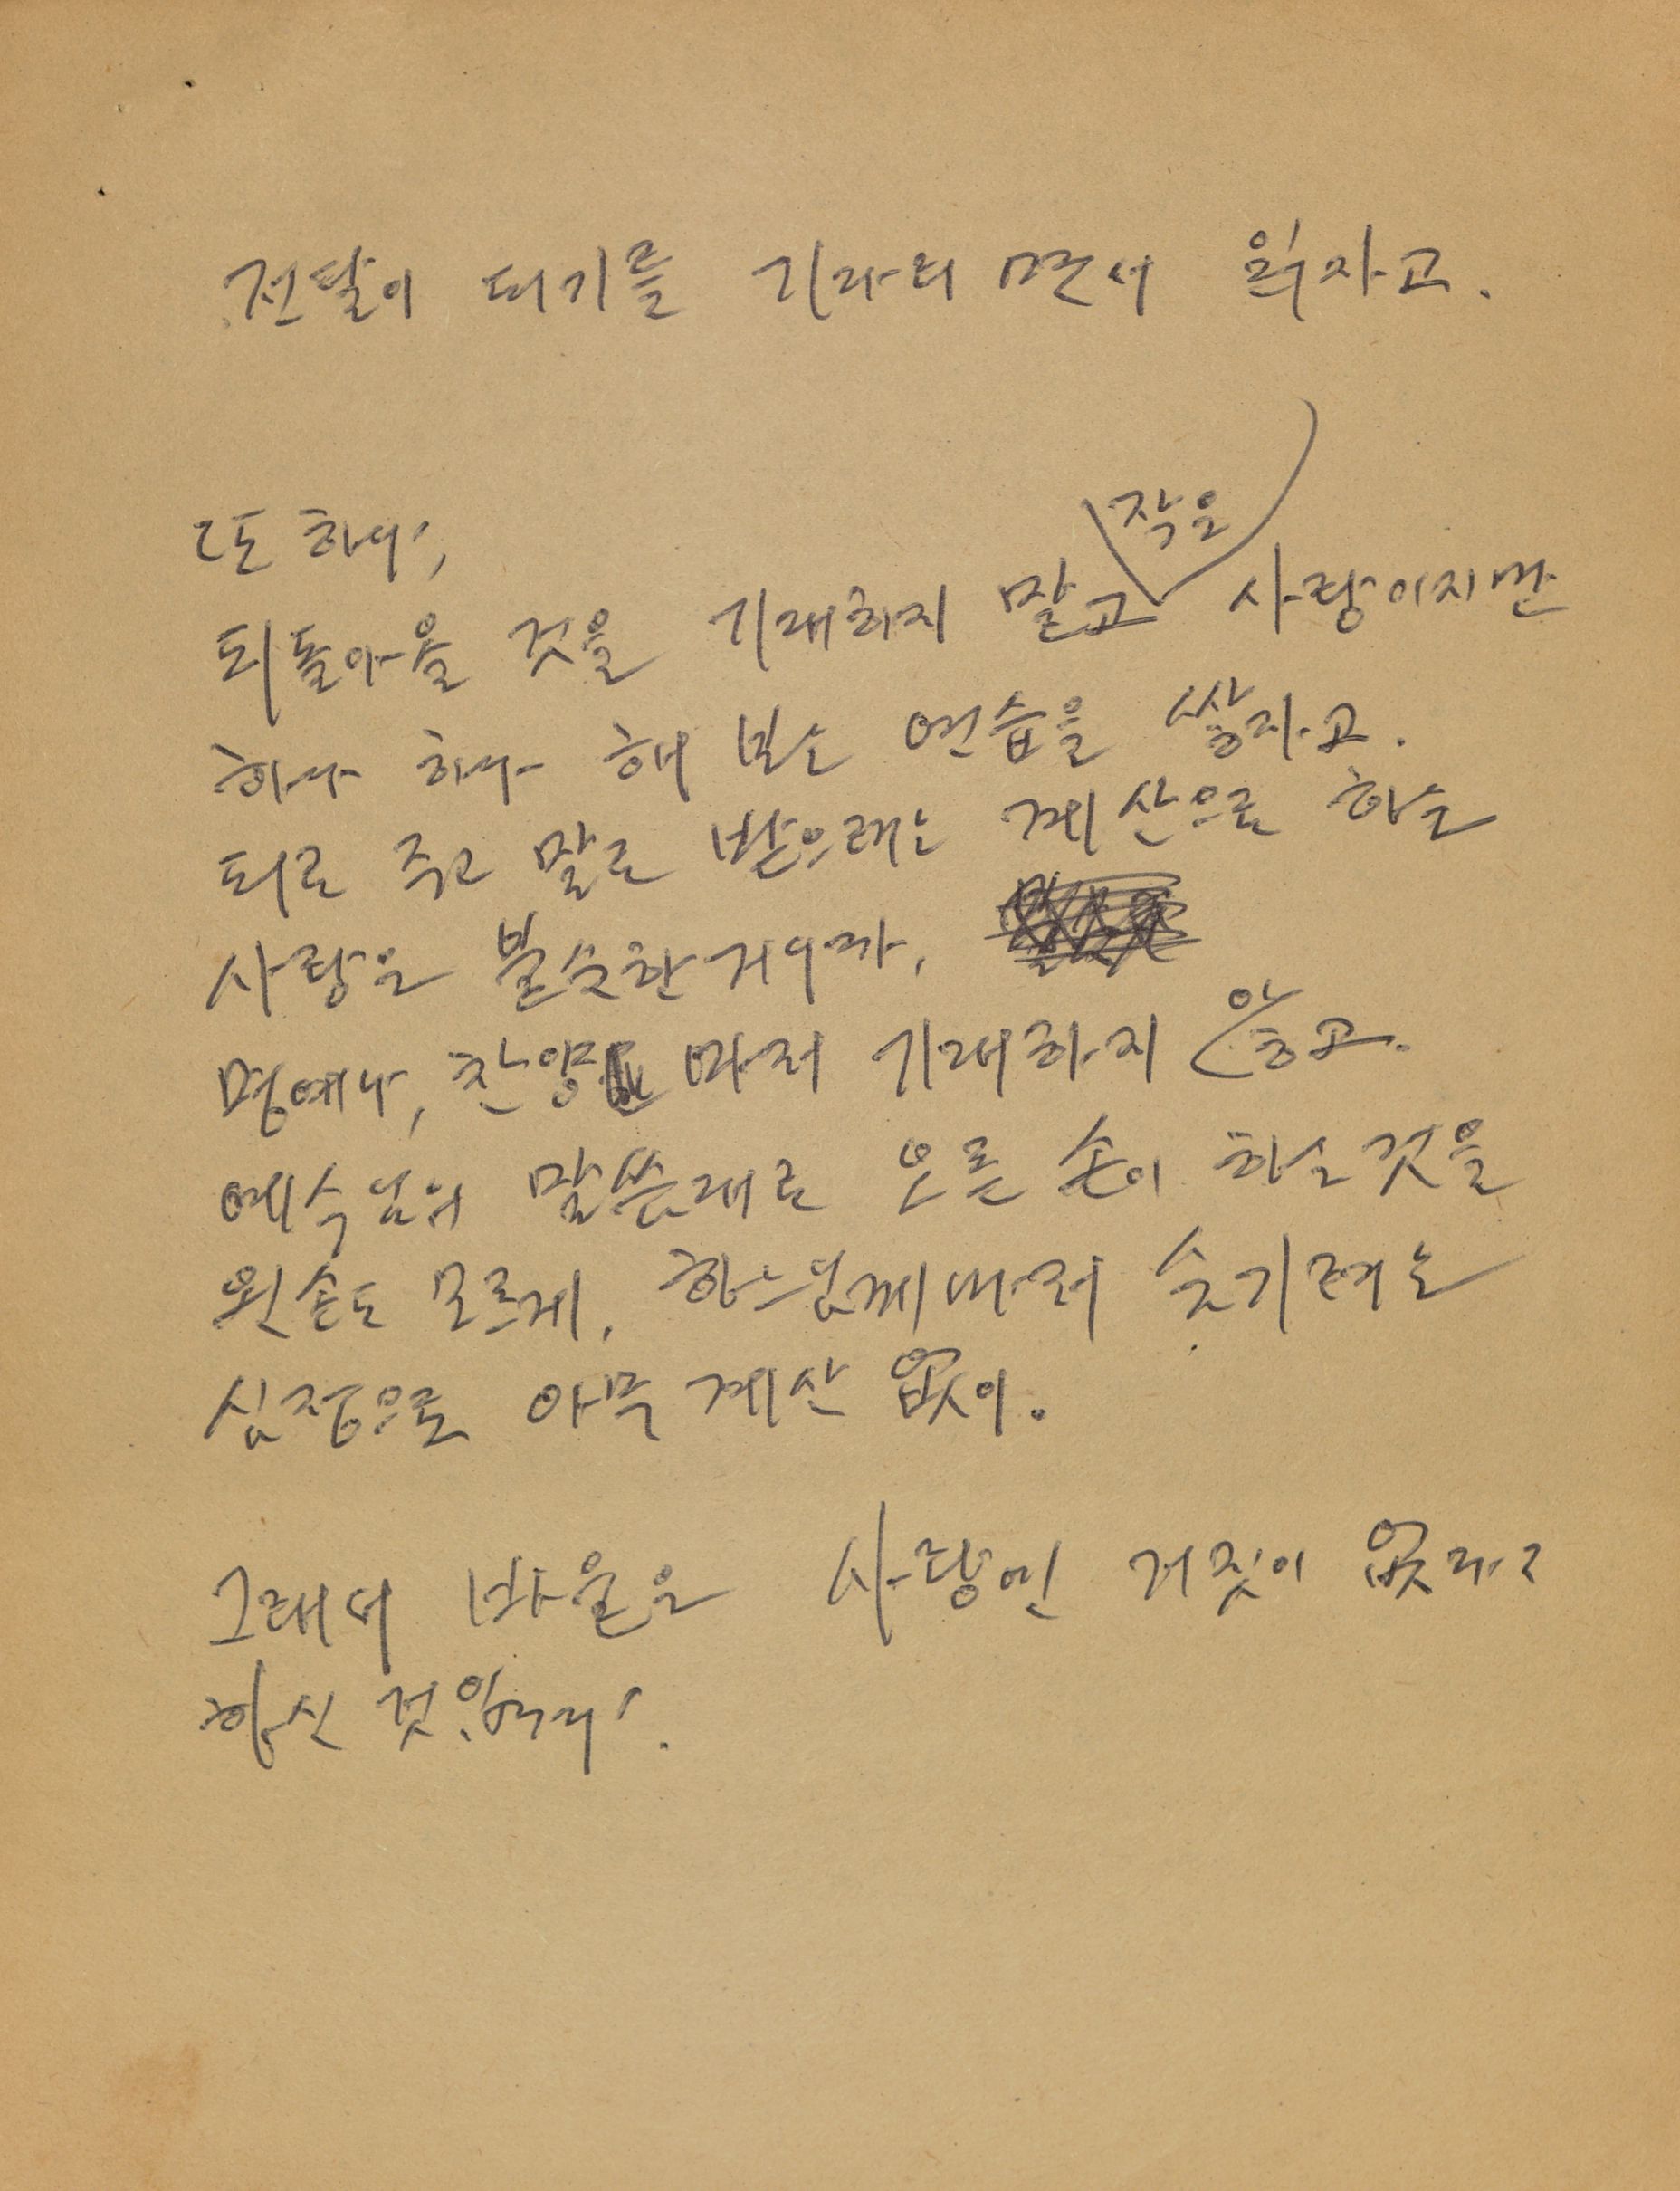 전달이 되기를 기다리면서 외자고.
또 하나,
되돌아올 것을 기대하지 말고 작은 사랑이지만
하나 하나 해 보는 연습을 쌓자고.
되로 주고 말로 받으려는 계산으로 하는
사랑은 불순한거니까,
명예나, 찬양마저 기대하지 않고.
예수님의 말씀대로 오른 손이 하는 것을
왼손도 모르게, 하느님께마저 숨기려는
심정으로 아무 계산 없이.
그래서 바울은 사랑엔 거짓이 없다고
하신 것입니다.